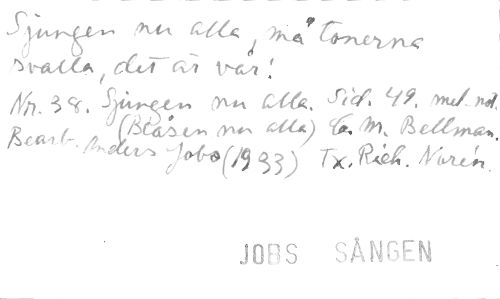 Sjungen nu alla, må tonerna
svalla, det är vår!
Nr. 38. Sjungen nu alla. Sid. 49. mel. not.
(Blåsen nu alla) C. M. Bellman.
Bearb. Anders Jobs (1933) Tx. Rich. Norén.
JOBS SÅNGEN